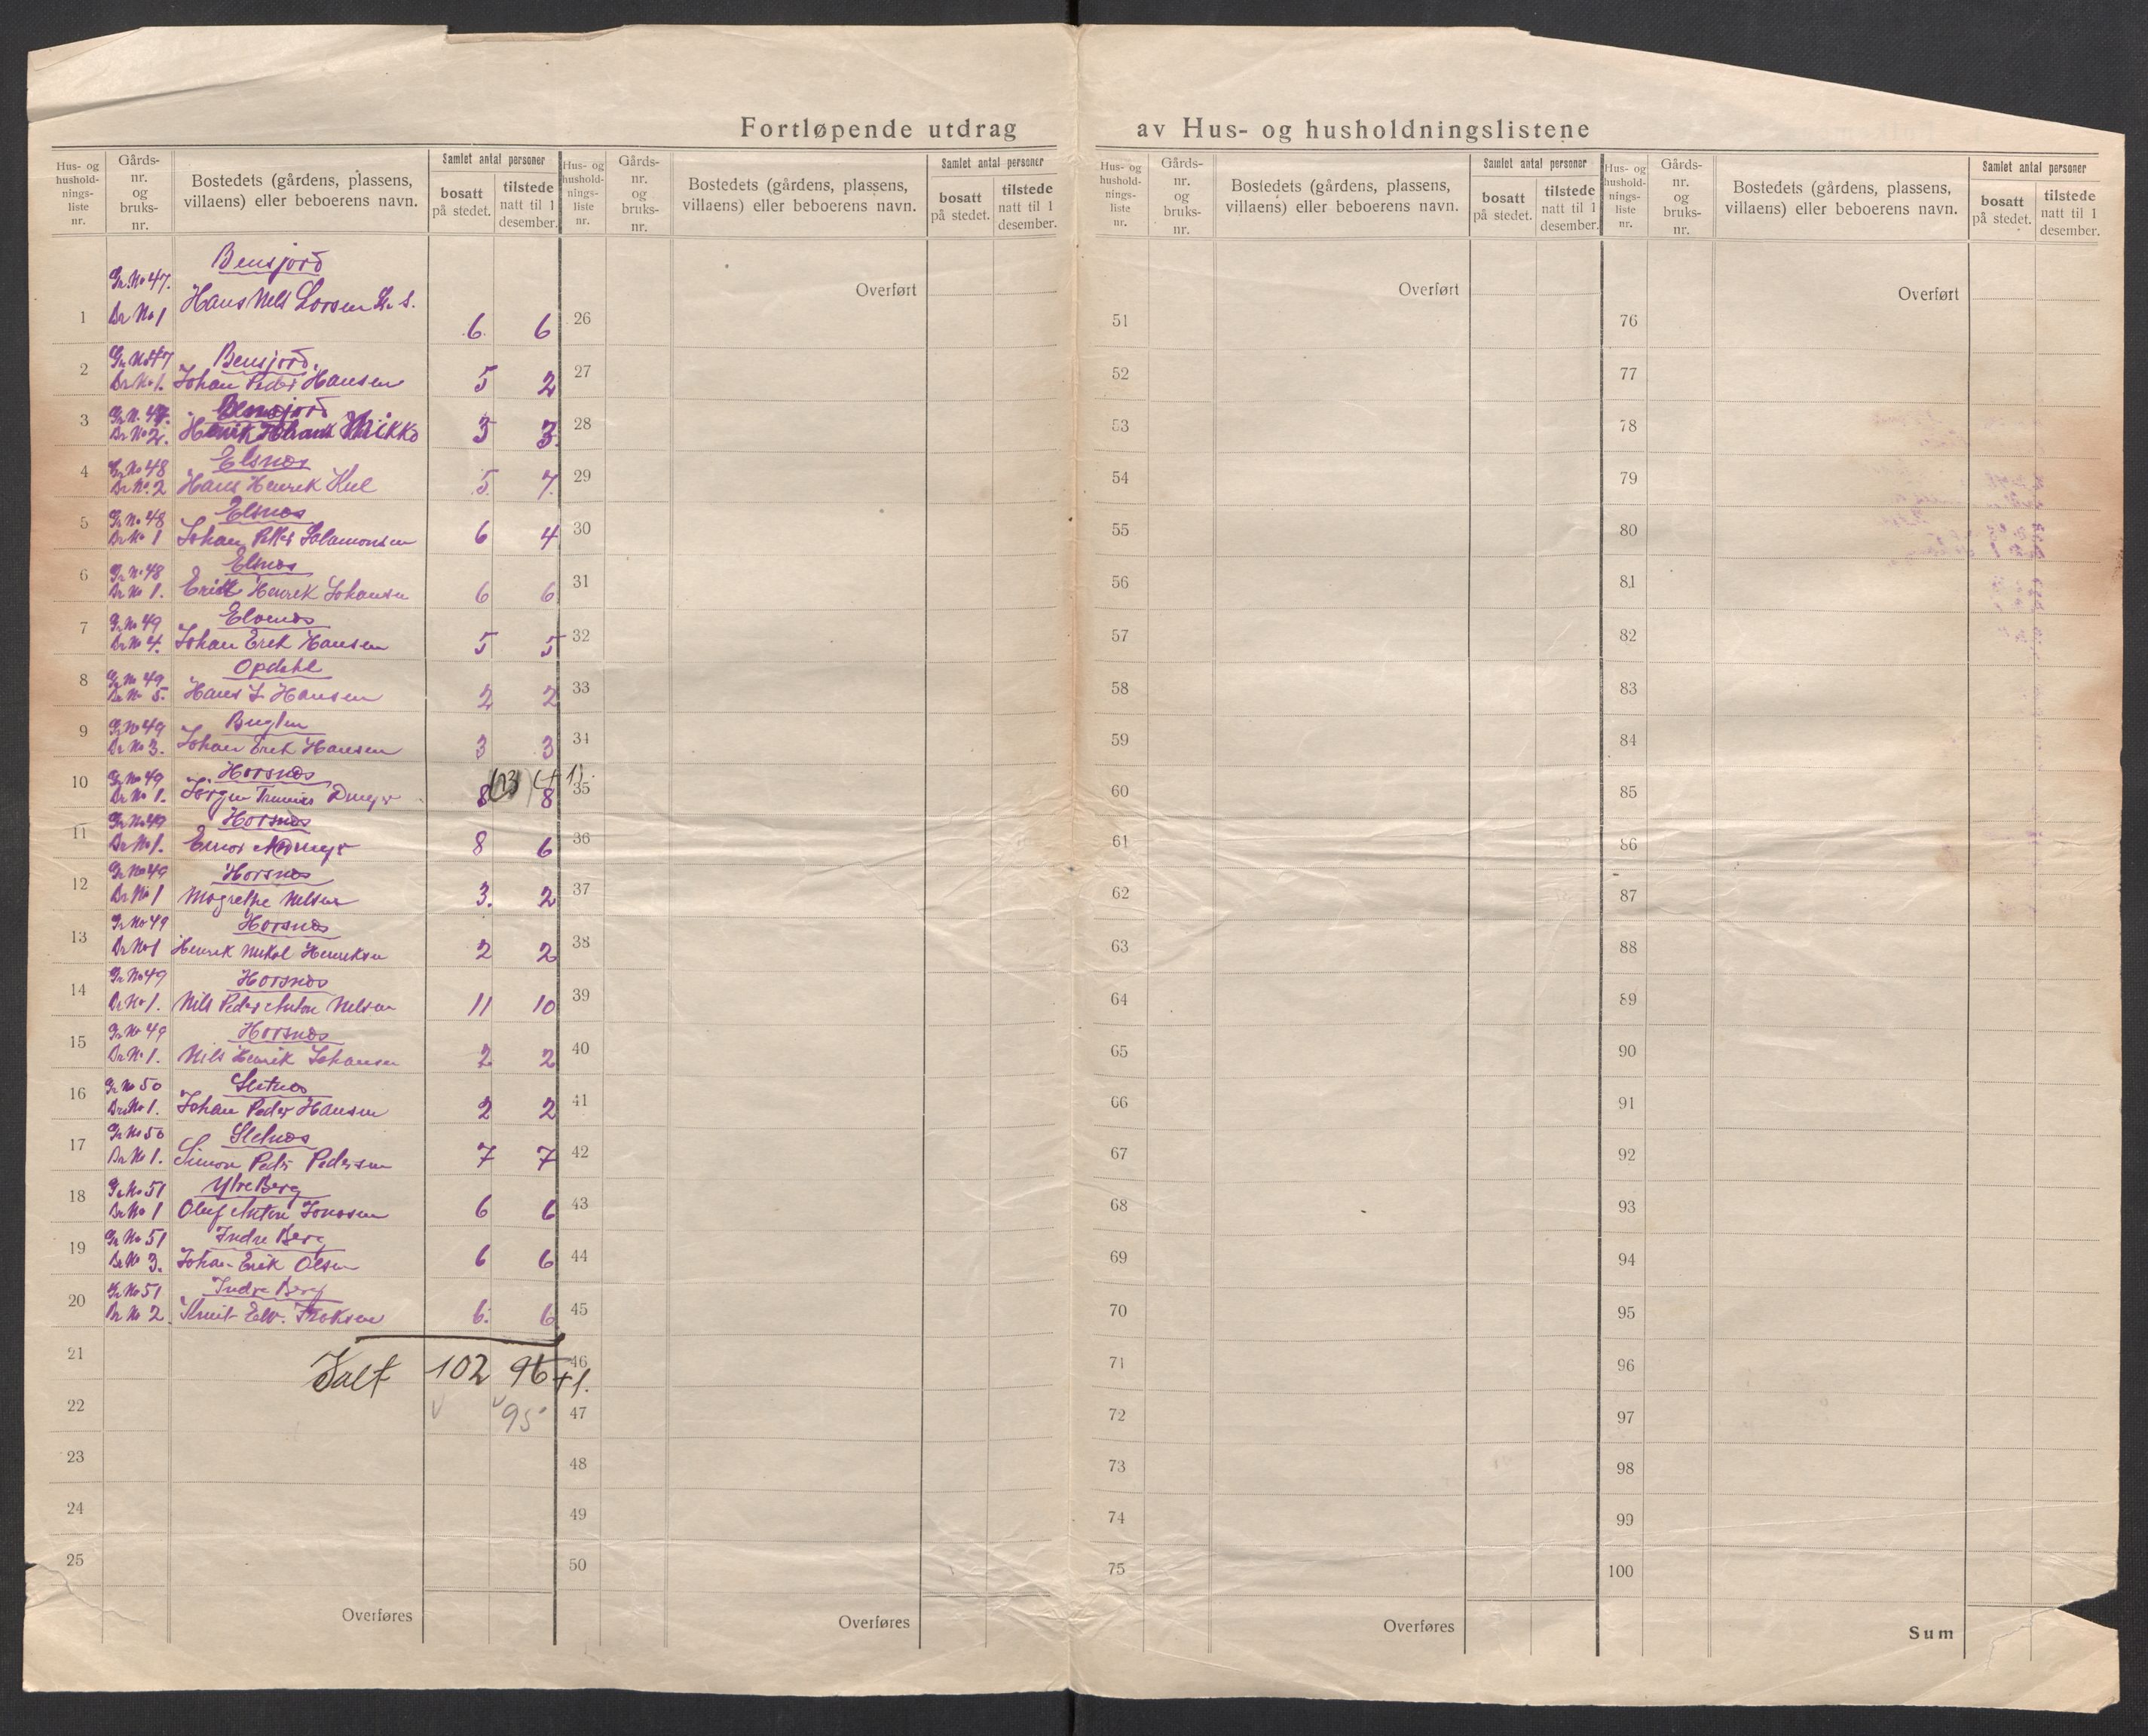 Fortløpende utdrag av Hus- og husholdningslistene
Hus- og hushold-nings-liste nr.
Gårds-nr. og bruks-nr.
Bostedets (gårdens, plassens, villaens) eller beboerens navn.
Samlet antal personer
bosatt på stedet.
tilstede natt til 1 desember.
Hus- og hushold-nings-liste nr.
Gårds-nr. og bruks-nr.
Bostedets (gårdens, plassens, villaens) eller beboerens navn.
Samlet antal personer
bosatt på stedet.
tilstede natt til 1 desember.
Hus- og hushold-nings-liste nr.
Gårds-nr. og bruks-nr.
Bostedets (gårdens, plassens, villaens) eller beboerens navn.
Samlet antal personer
bosatt på stedet.
tilstede natt til 1 desember.
Hus- og hushold-nings-liste nr.
Gårds-nr. og bruks-nr.
Bostedets (gårdens, plassens, villaens) eller beboerens navn.
Samlet antal personer
bosatt på stedet.
tilstede natt til 1 desember.
Gr. No 47. Bensjord
1 Br No 1 Hans Nils Larsen 6. 6
Gr. No 47 Bensjord.
2 Br No 1. Johan Peder Hansen 5 2
Gr N. 47. Bensjord
3 Br No 2. Henrik Mikko 3 3
Gr No 48 Elsnes
4 Br No. 2 Hans Henrik 5. 7.
Gr No 48 Elsnes
5 Br No 1 Johan Peder Salamonsen 6 4
Gr No 48 Elsnes
6 Br No 1. Erik Henrik Johansen 6 6
Gr No 49 Elvenes
7 Br No 4. Johan Erik Hansen 5 5
Gr No 49 Opdahl
8 Br No 5. Hans J. Hansen 2 2
Gr No 49
9 Br No 3. Johan Erik Hansen 3 3
Gr No 49 Horsnes (+1).
10 Br No 1. Jörgen 8 8
Gr No 49 Horsnes
11 Br No 1. 8 6
Gr No 49 Horsnes
12 Br No 1 Magrethe Nilsen 3. 2
Gr No 49 Horsnes
13 Br No 1 Henrik Mikal Henriksen 2 2
Gr No 49 Horsnes
14 Br No 1. Nils Peder Anton Nilsen 11 10
Gr No 49 Horsnes
15 Br No 1. Nils Henrik Johansen 2 2
Gr No 50 Sletnes
16 Br No 1. Johan Peder Hansen 2 2
Gr No 50 Sletnes
17 Br No 1. Simon Peder Pedersen 7 7
Gr No 51 Ytre Berg
18 Br No 1 Oluf Anton Jonasen 6 6
Gr No 51 Indre Berg
19 Br No 3. Johan Erik Olsen 6 6
Gr No 51 Indre Berg
20 Br No 2. Knut Edv. 6. 6
21 Ialt 102 96 +1.
22 95
23
24
25
Overføres
Overført
26
27
28
29
30
31
32
33
34
35
36
37
38
39
40
41
42
43
44
45
46
47
48
49
50
Overføres
Overført
51
52
53
54
55
56
57
58
59
60
61
62
63
64
65
66
67
68
69
70
71
72
73
74
75
Overføres
Overført
76
77
78
79
80
81
82
83
84
85
86
87
88
89
90
91
92
93
94
95
96
97
98
99
100
Sum